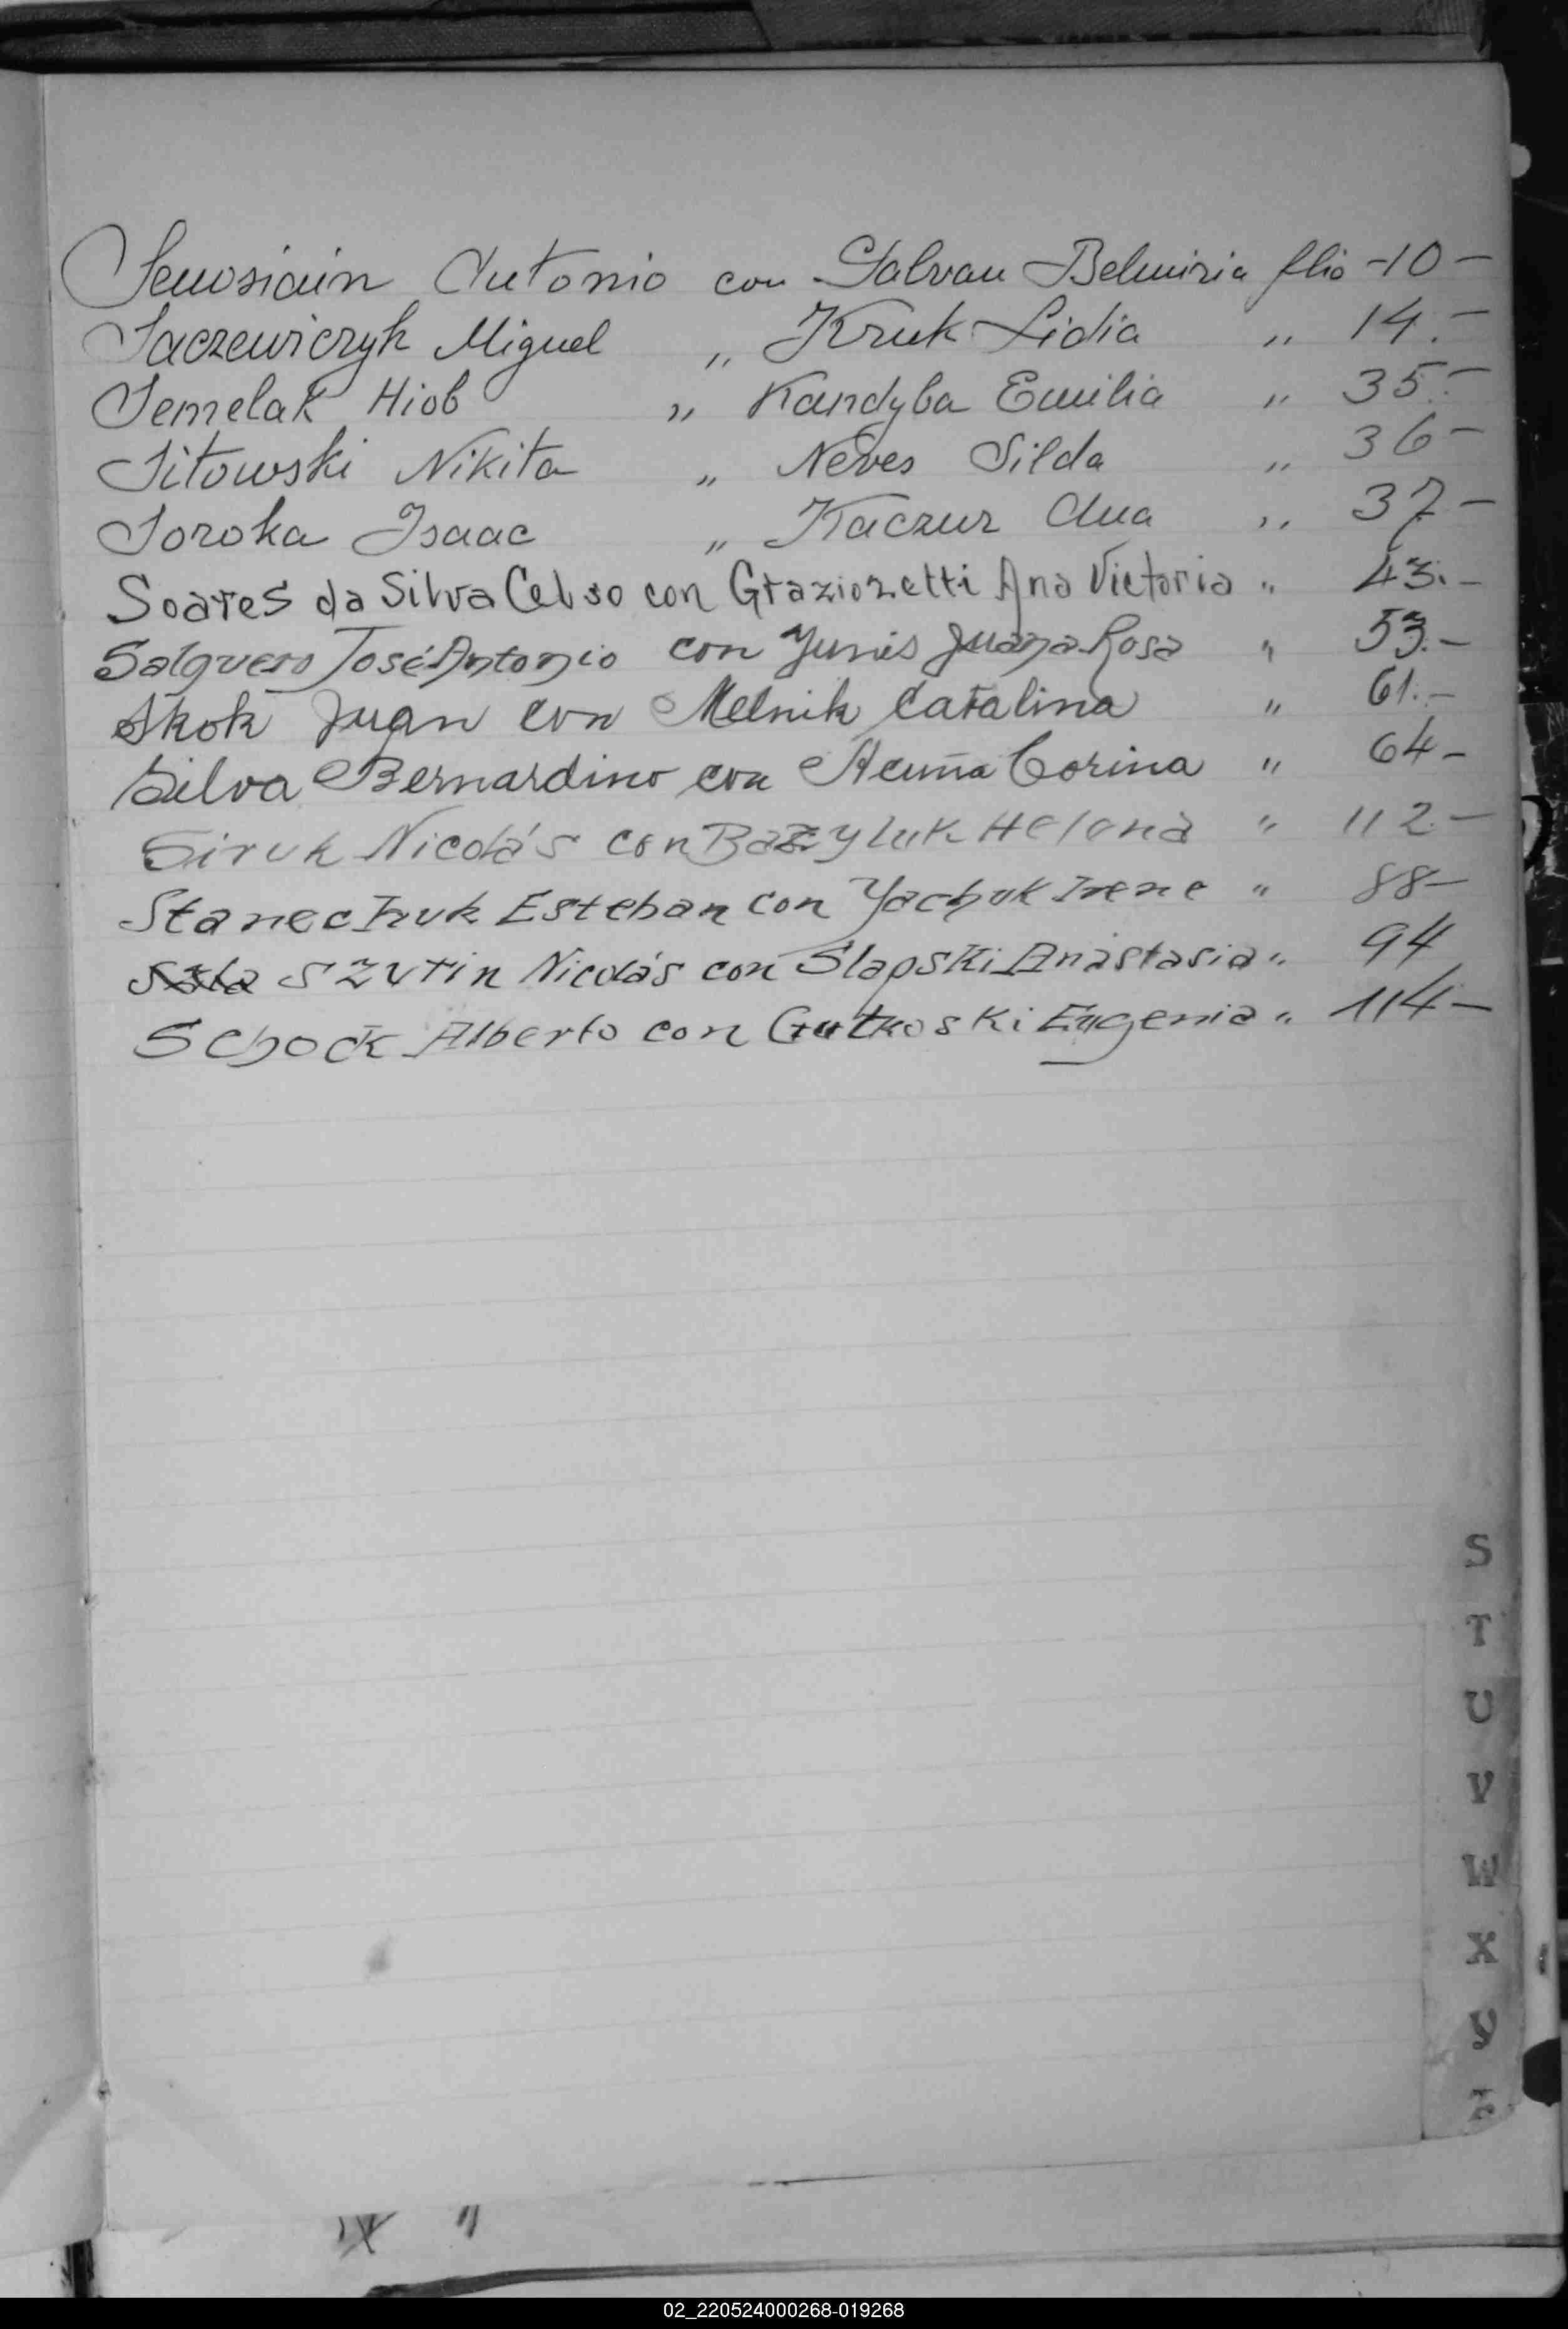 Senosiain Antonio con Galvan Belmiria flio -10-
Saczewiczyk Miguel " Kruk Lidia " 14.-
Semelak Hiob " Kandyba Emilia " 35.-
Sitowski Nikita " Neves Silda " 36-
Soroka Isaac " Kaczur Ana " 37-
Soares da Silva Celso con Grazionetti Ana Victoria " 43.-
Salguero José Antonio con Yunis Juana Rosa " 53.-
Skok Juan con Melnik Catalina " 61.-
Silva Bernardino con Acuña Corina " 64-
Siruk Nicolás con Bazyluk Helena " 112-
Stanechuk Esteban con Yachuk Irene " 88-
Szutin Nicolás con Slapski Anastasia " 94
Schock Alberto con Gutkoski Eugenia " 114-
S
T
U
V
W
X
Y
Z
02_220524000268-019268